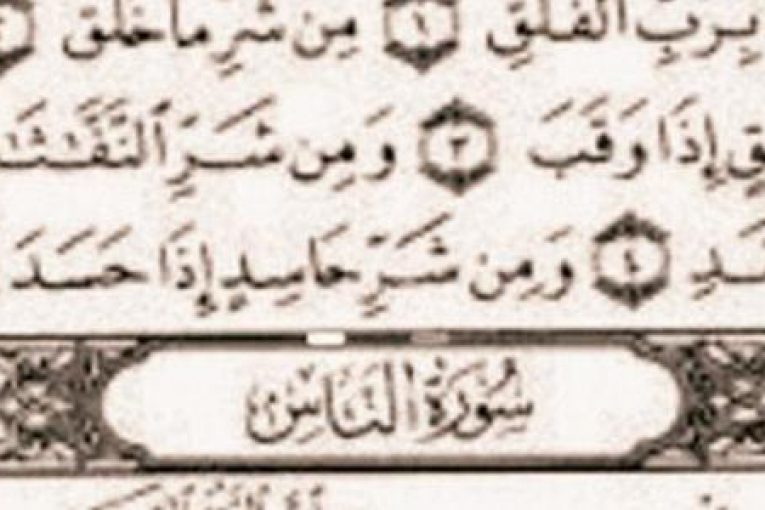 بِرَبِّ ٱلْفَلَقِ ١ مِن شَرِّ مَا خَلَقَ
إِذَا وَقَبَ ٣ وَمِن شَرِّ ٱلنَّفَّـٰثَـٰ
ـدِ ٤ وَمِن شَرِّ حَاسِدٍ إِذَا حَسَدَ
سُورَةُ النَّاسِ